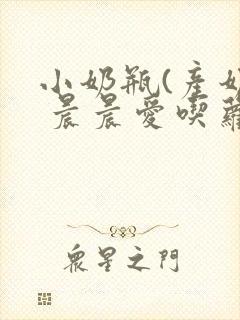 小奶瓶(產奶
晨晨愛喫蘿
眾星之門